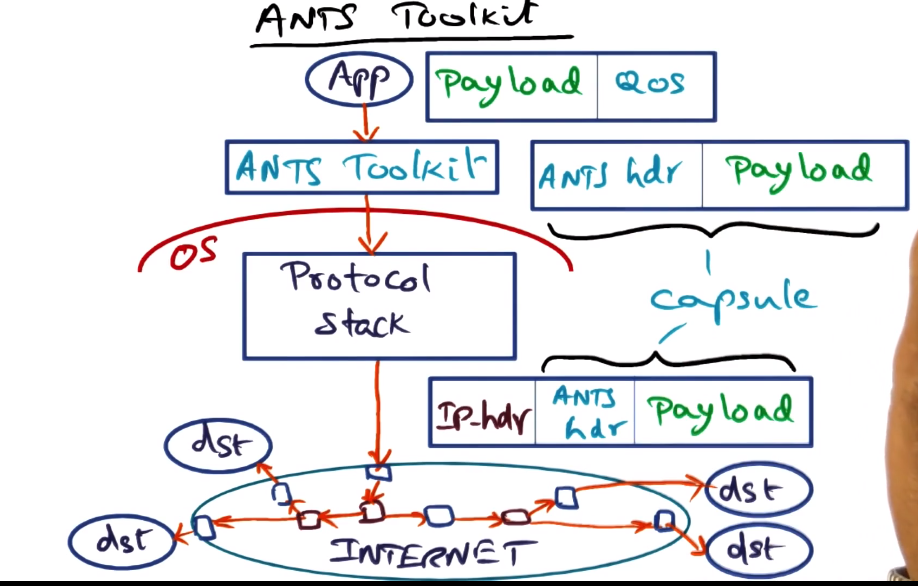 ANTS Toolkit
App
Payload QOS
ANTS Toolkit
ANTS hdr Payload
OS
Protocol
stack
capsule
IP-hdr ANTS hdr Payload
dst
dst
dst
dst
INTERNET